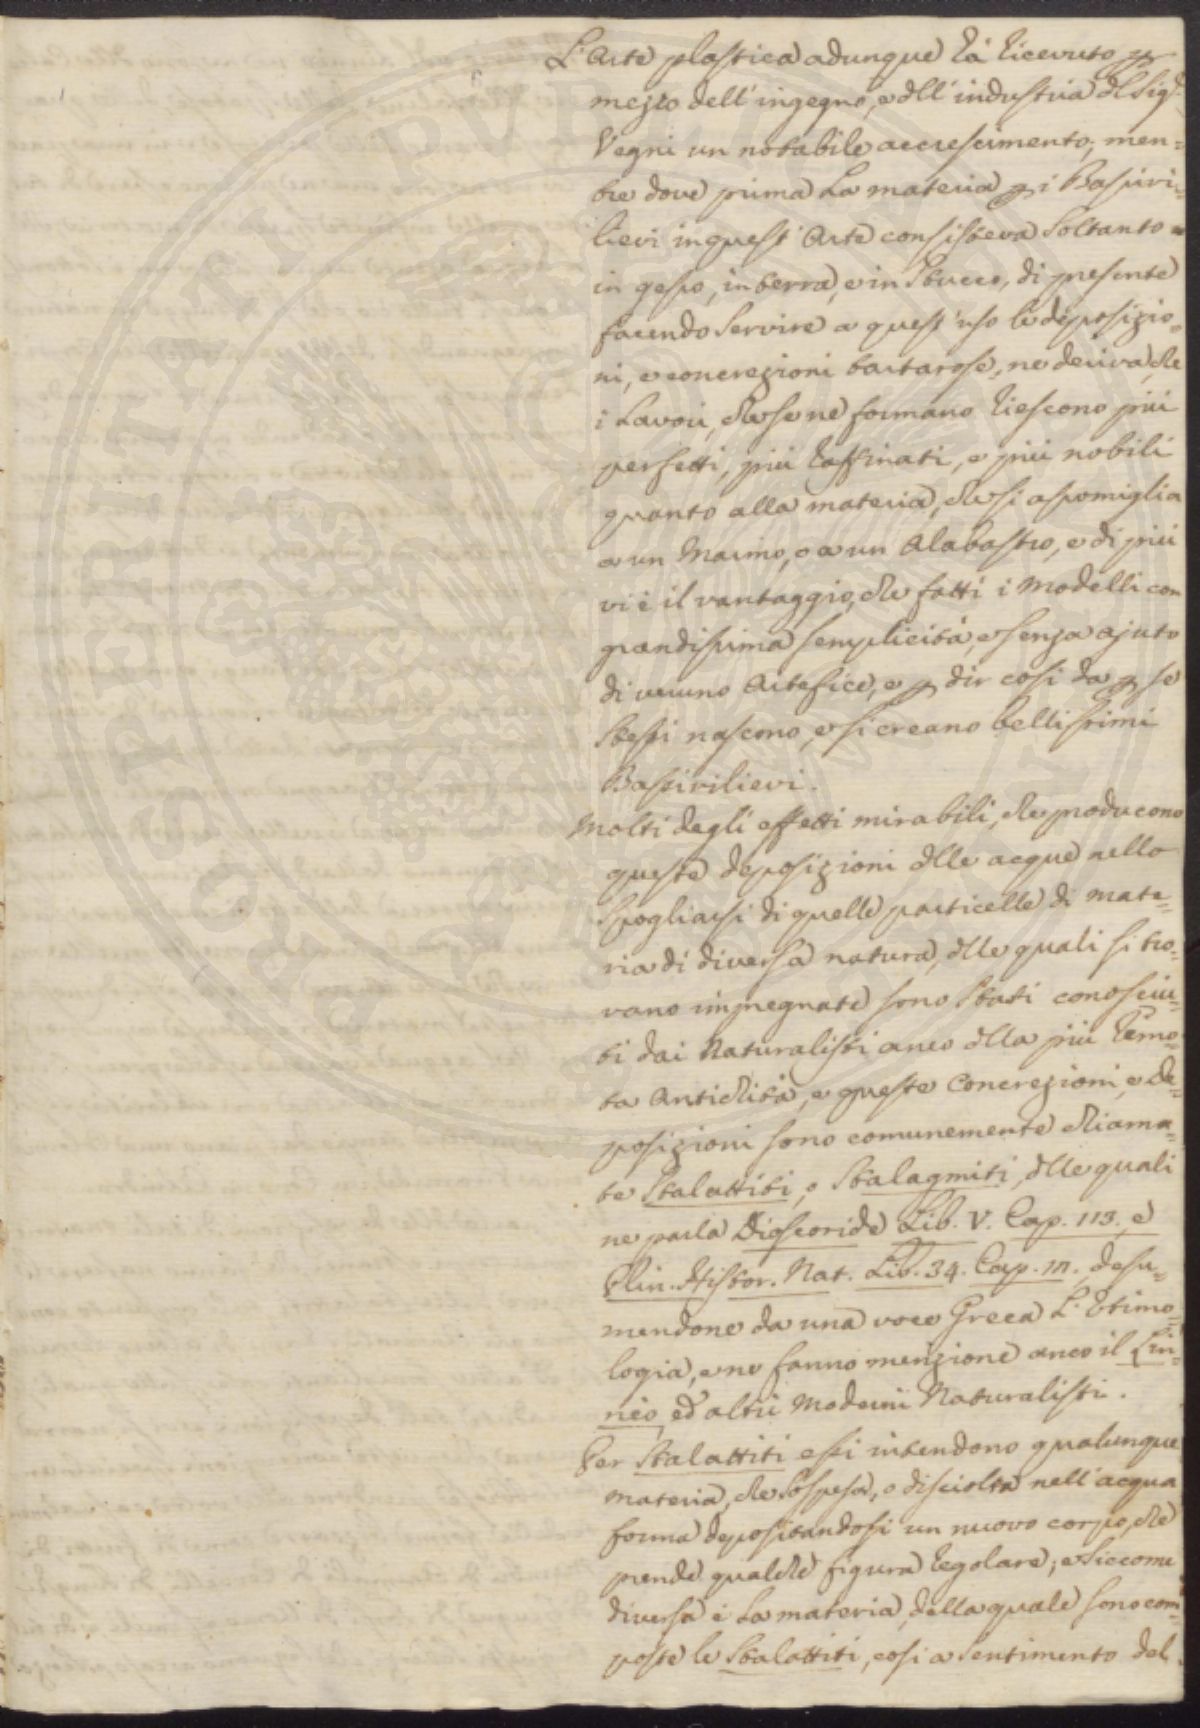 L'Arte plastica adunque hà ricevuto p
mezzo dell'ingegno, e dll'industria dl Sig.r
Vegni un notabile accrescimento; men=
tre dove prima la materia p i Bassiri=
lievi in quest'Arte consisteva soltanto
in gesso, in terra, e in stucco, di presente
facendo servire a quest'uso le deposizio=
ni, e concrezioni tartarose, ne deriva, che
i Lavori, che se ne formano riescono più
perfetti, più raffinati, e più nobili
quanto alla materia, che si assomiglia
a un Marmo, o a un Alabastro, e di più
vi è il vantaggio, che fatti i Modelli con
grandissima semplicità, e senza ajuto
di veruno Artefice, e p dir così da p se
stessi nascono, e si creano bellissimi
Bassirilievi.
Molti degli effetti mirabili, che producono
queste deposizioni dlle acque nello
spogliarsi di quelle particelle di mate=
ria di diversa natura, dlle quali si tro=
vano impregnate sono stati conosciu=
ti dai Naturalisti anco dlla più remo=
ta Antichità, e queste Concrezioni, e de=
posizioni sono comunemente chiama=
te Stalattiti, o Stalagmiti, dlle quali
ne parla Dioscoride Lib. V. Cap. 113, e
Plin. Histor. Nat. Lib. 34. Cap. , desu=
mendone da una voce Greca l'Etimo=
logia, e ne fanno menzione anco il Lin=
neo, ed altri Moderni Naturalisti.
Per Stalattiti essi intendono qualunque
materia, che sospesa, o disciolta nell'acqua
forma depositandosi un nuovo corpo, che
prende qualche figura regolare; e siccome
diversa è la materia, della quale sono com=
poste le Stalattiti, così a sentimento del
PROSPERITATI PVBLICAE